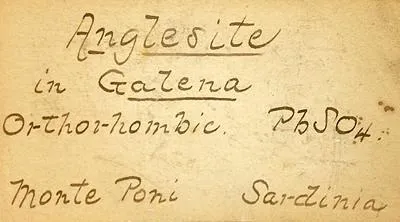 Anglesite
in Galena
Orthorhombic. PbSO4.
Monte Poni Sardinia